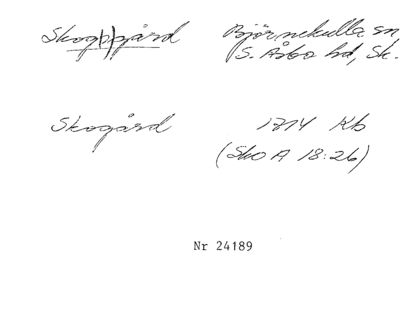 Skoggård Björnekulla sn,
S. Åsbo hd, Sk.
Skogård 1714 Kb
(Sko A 18:26)
Nr 24189